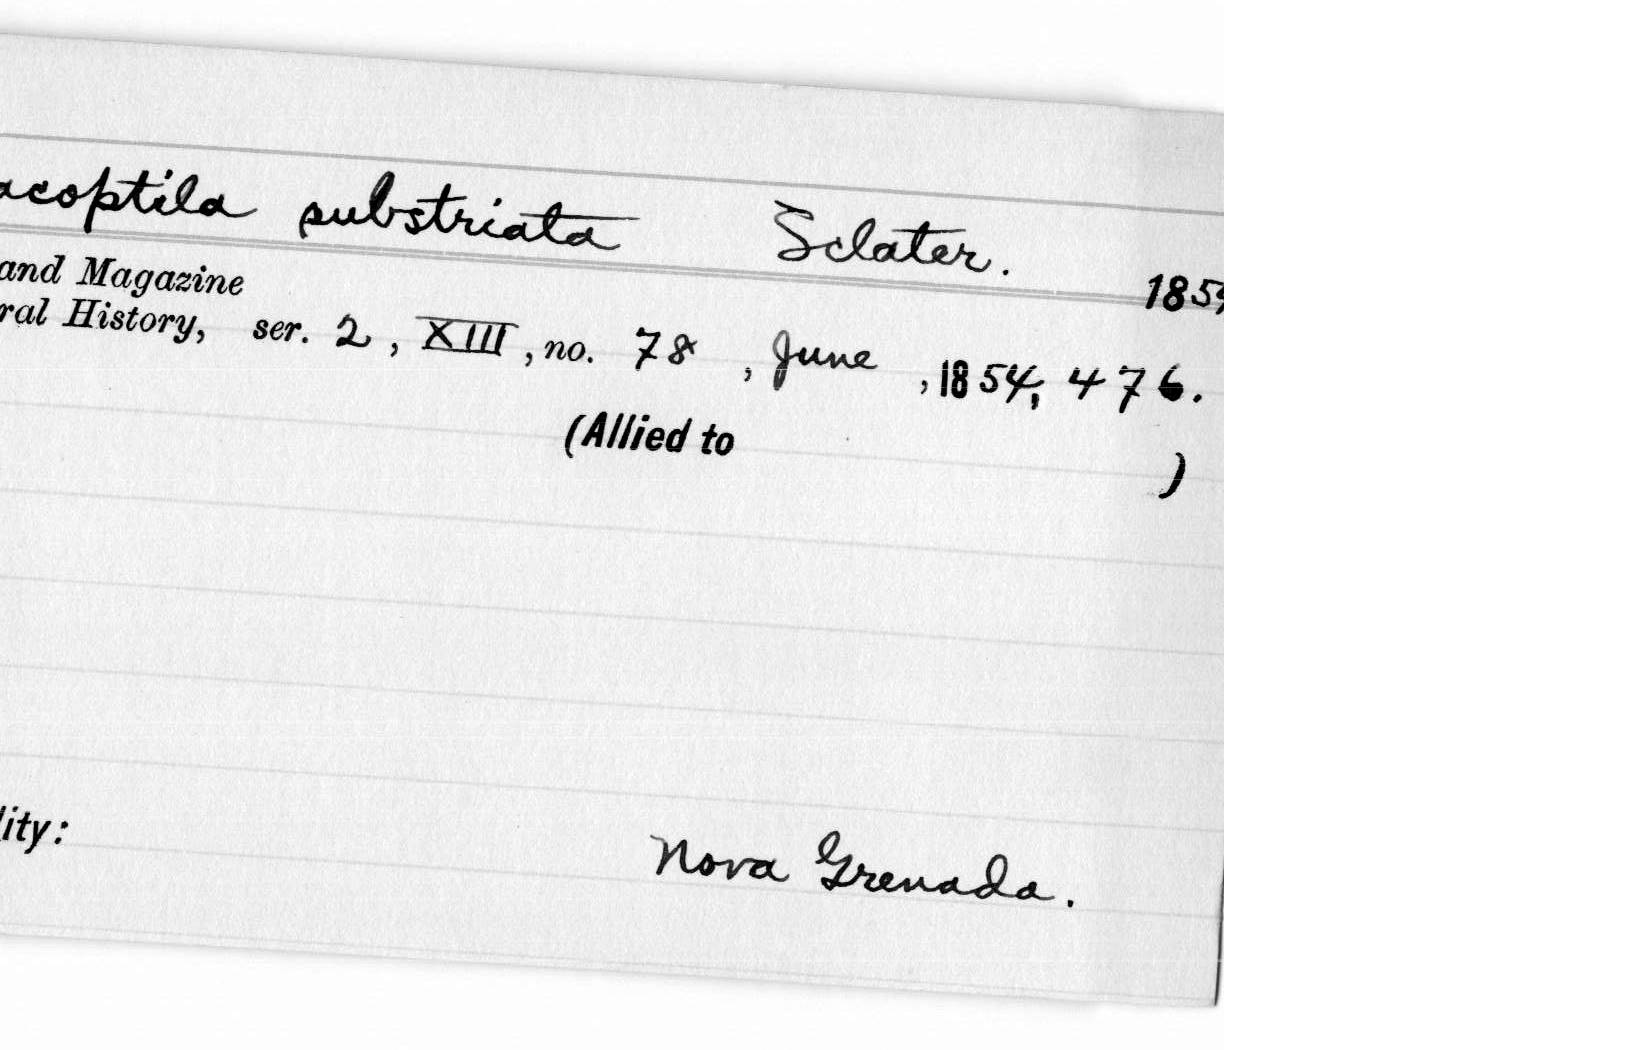 acoptila substriata Sclater. 1854
and Magazine
ral History, ser. 2, XIII, no. 78, June, 1854, 476.
(Allied to )
lity: Nova Grenada.